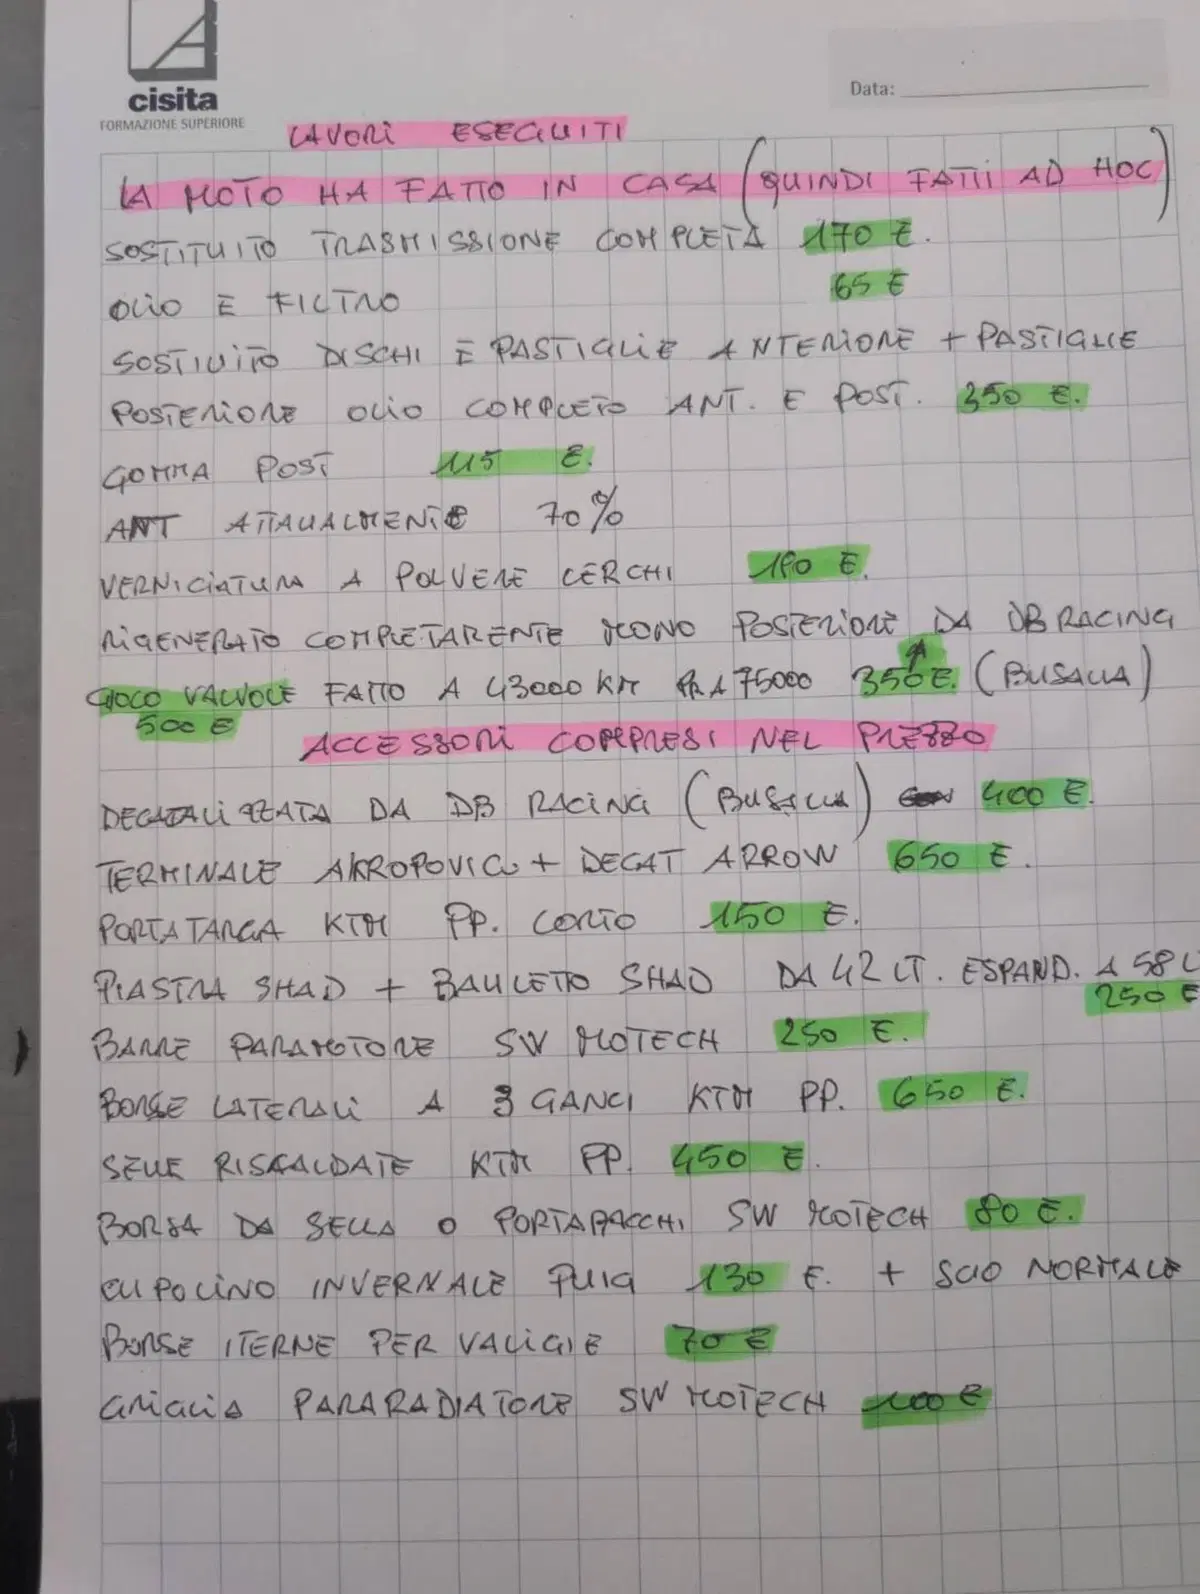 cisita
FORMAZIONE SUPERIORE
Data:
LAVORI ESEGUITI
LA MOTO HA FATTO IN CASA (QUINDI FATTI AD HOC)
SOSTITUITO TRASMISSIONE COMPLETA 170 €.
OLIO E FILTRO 65 €
SOSTIUITO DISCHI E PASTIGLIE ANTERIORE + PASTIGLIE
POSTERIORE OLIO COMPLETO ANT. E POST. 350 €.
GOMMA POST 115 €.
ANT ATTAUALMENTE 70%
VERNICIATURA A POLVERE CERCHI €.
RIGENERATO COMPLETAMENTE MONO POSTERIORE DA DB RACING
GIOCO VALVOLE FATTO A 43000 KM 75000 350 €. (BUSALLA)
500 €
ACCESSORI COMPRESI NEL PREZZO
DECATALIZZATA DA DB RACING (BUSALLA) 400 €.
TERMINALE AKROPOVIC + DECAT ARROW 650 €.
PORTATARGA KTM PP. CORTO 150 €.
PIASTRA SHAD + BAULETTO SHAD DA 42 LT. ESPAND. A 58 L
250 €
BARRE PARAMOTORE SW MOTECH 250 €.
BORSE LATERALI A 3 GANCI KTM PP. 650 €.
SELLE RISCALDATE KTM PP. 450 €.
BORSA DA SELLA O PORTAPACCHI SW MOTECH 80 €.
CUPOLINO INVERNALE PUIG 130 €. + SUO NORMALE
BORSE ITERNE PER VALIGIE 70 €
GRIGLIA PARARADIATORE SW MOTECH 100 €